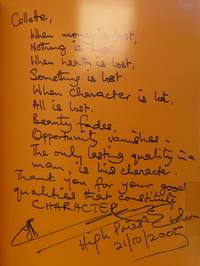 Collette,
When money is lost,
Nothing is lost.
When health is lost,
Something is lost
When Character is lost,
All is lost.
Beauty fades,
Opportunity vanishes -
The only lasting quality in a
man, is his character.
Thank you for your good
qualities that constitute
CHARACTER
High Priest
21/10/2005